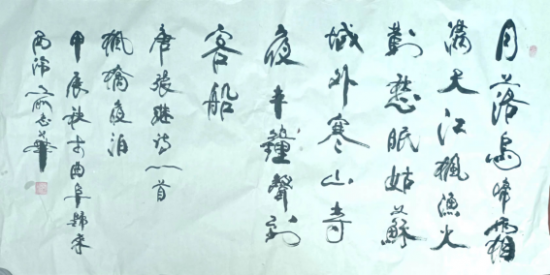 月落烏啼霜
滿天江楓漁火
對愁眠姑蘇
城外寒山寺
夜半鐘聲到
客船
唐張繼詩一首
楓橋夜泊
甲辰秋曲阜歸來